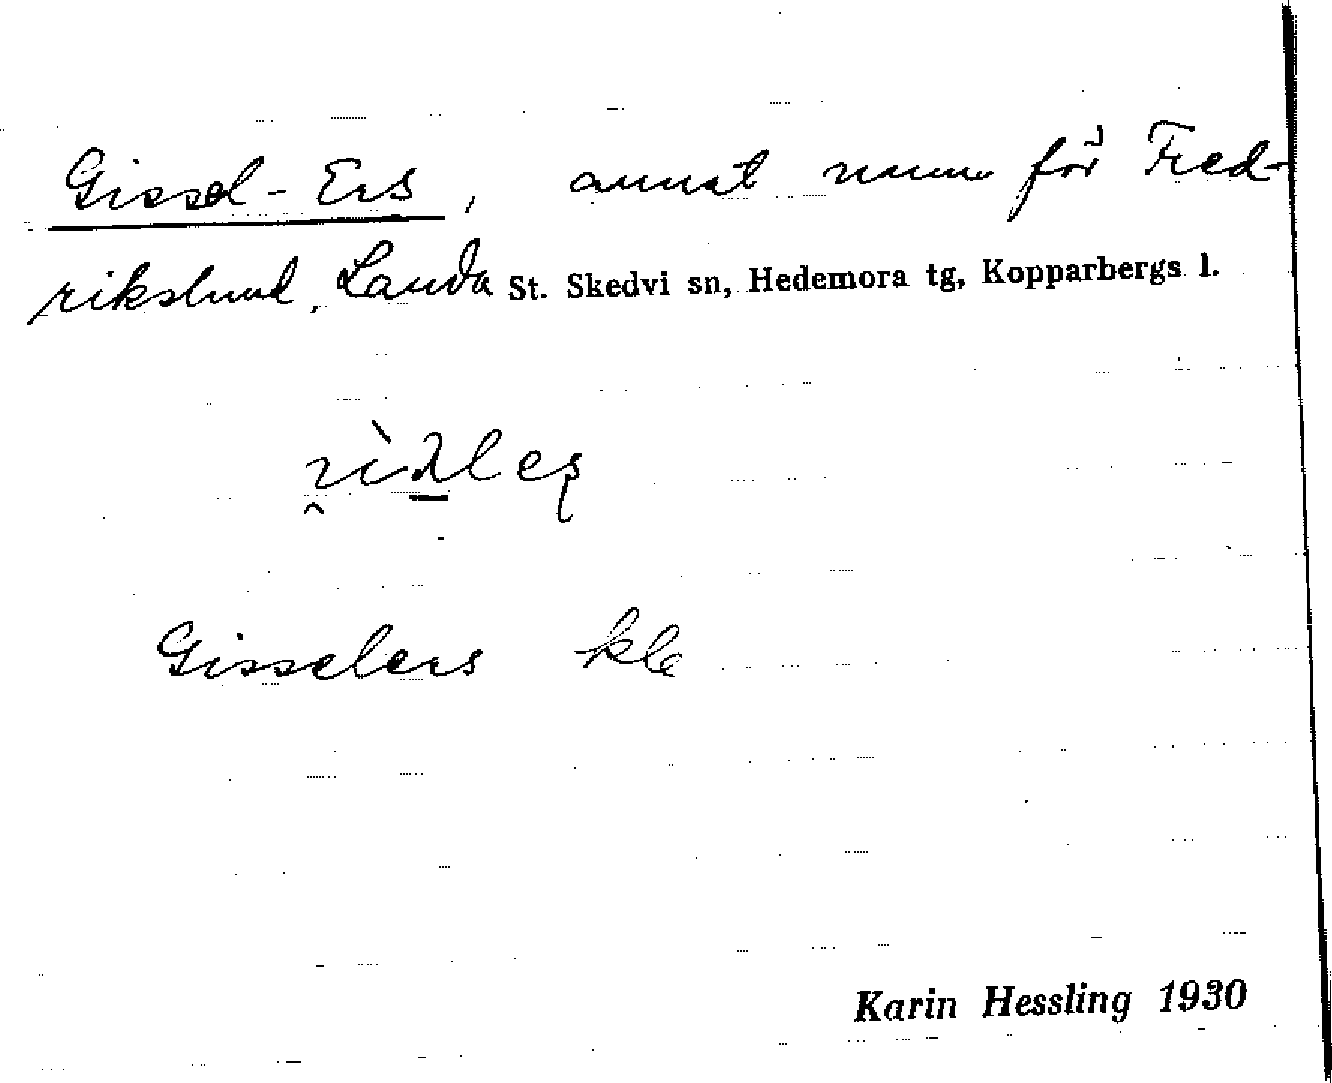 Gissel-Ers, annat namn för Fred-
rikslund, Landa St. Skedvi sn, Hedemora tg, Kopparbergs l.
Gisselers kla
Karin Hessling 1930